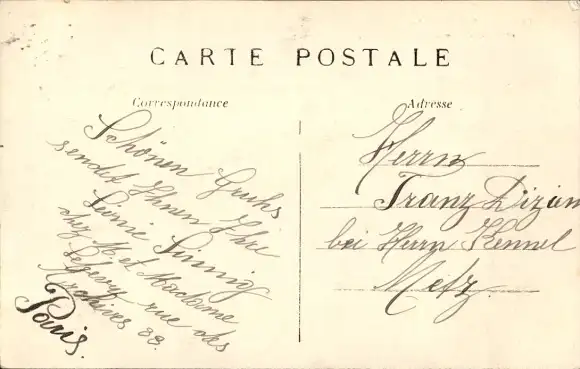 CARTE POSTALE
Correspondance
Schönen Gruhs
sendet Ihnen Ihri
Leonie
chez M. et Madame
rue des
Archives 88.
Paris.
Adresse
Herrn
Franz Dizin
bei Herrn Kennel
Metz.